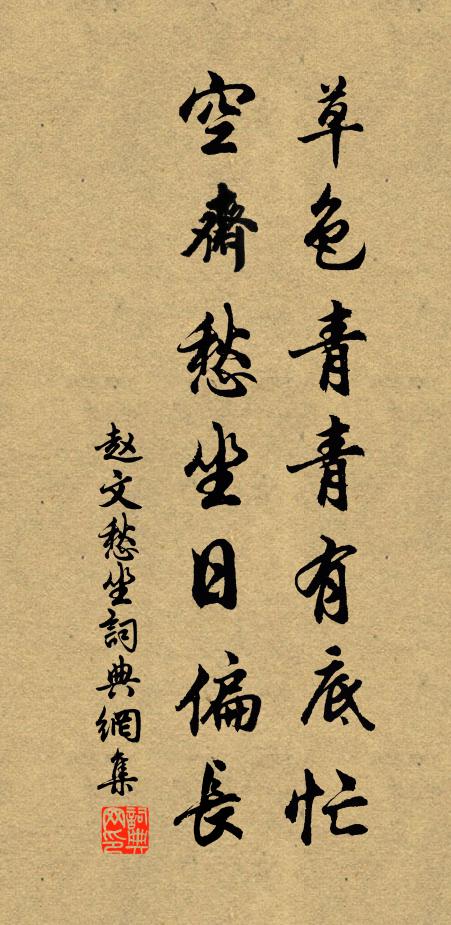 草色青青有底忙
空齋愁坐日偏長
赵文愁坐詞典網集
詞典
网印